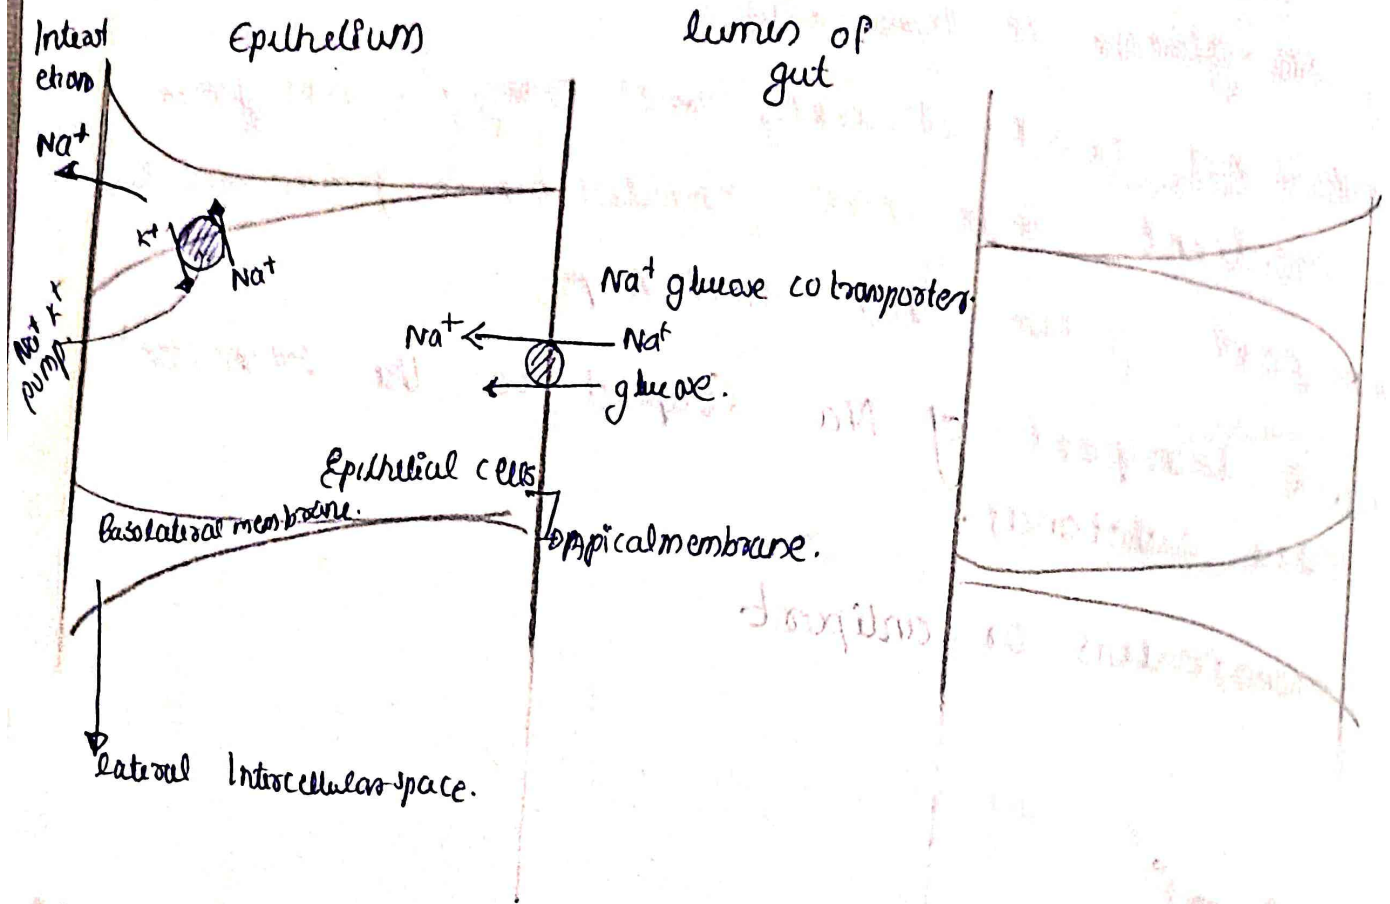 Epithelium
lumen of
gut
Na⁺
K⁺
Na⁺
Na⁺ K⁺
pump.
Na⁺ glucose cotransporter.
Na⁺
Na⁺
glucose.
Epithelial cells
Basolateral membrane.
Apical membrane.
lateral Intercellular space.